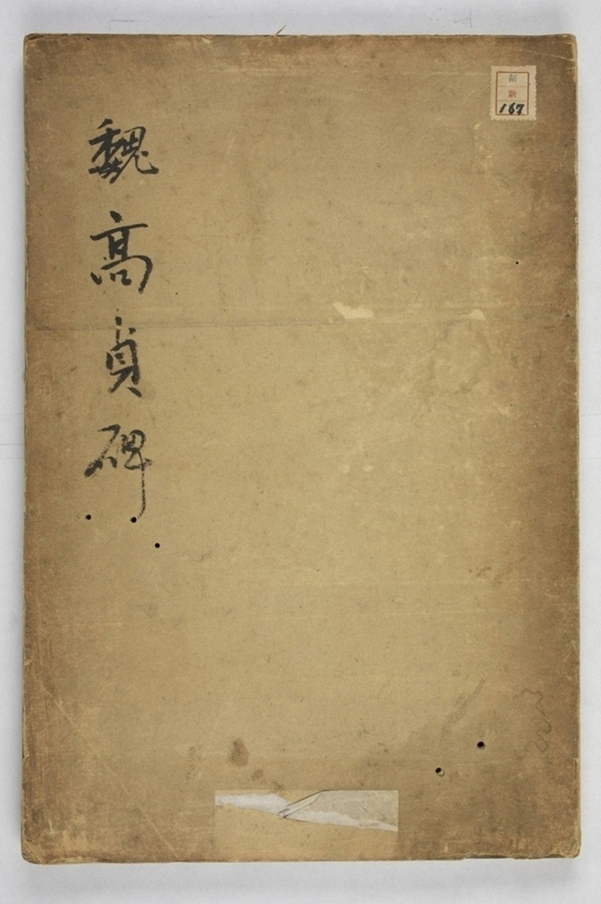 魏高貞碑
167